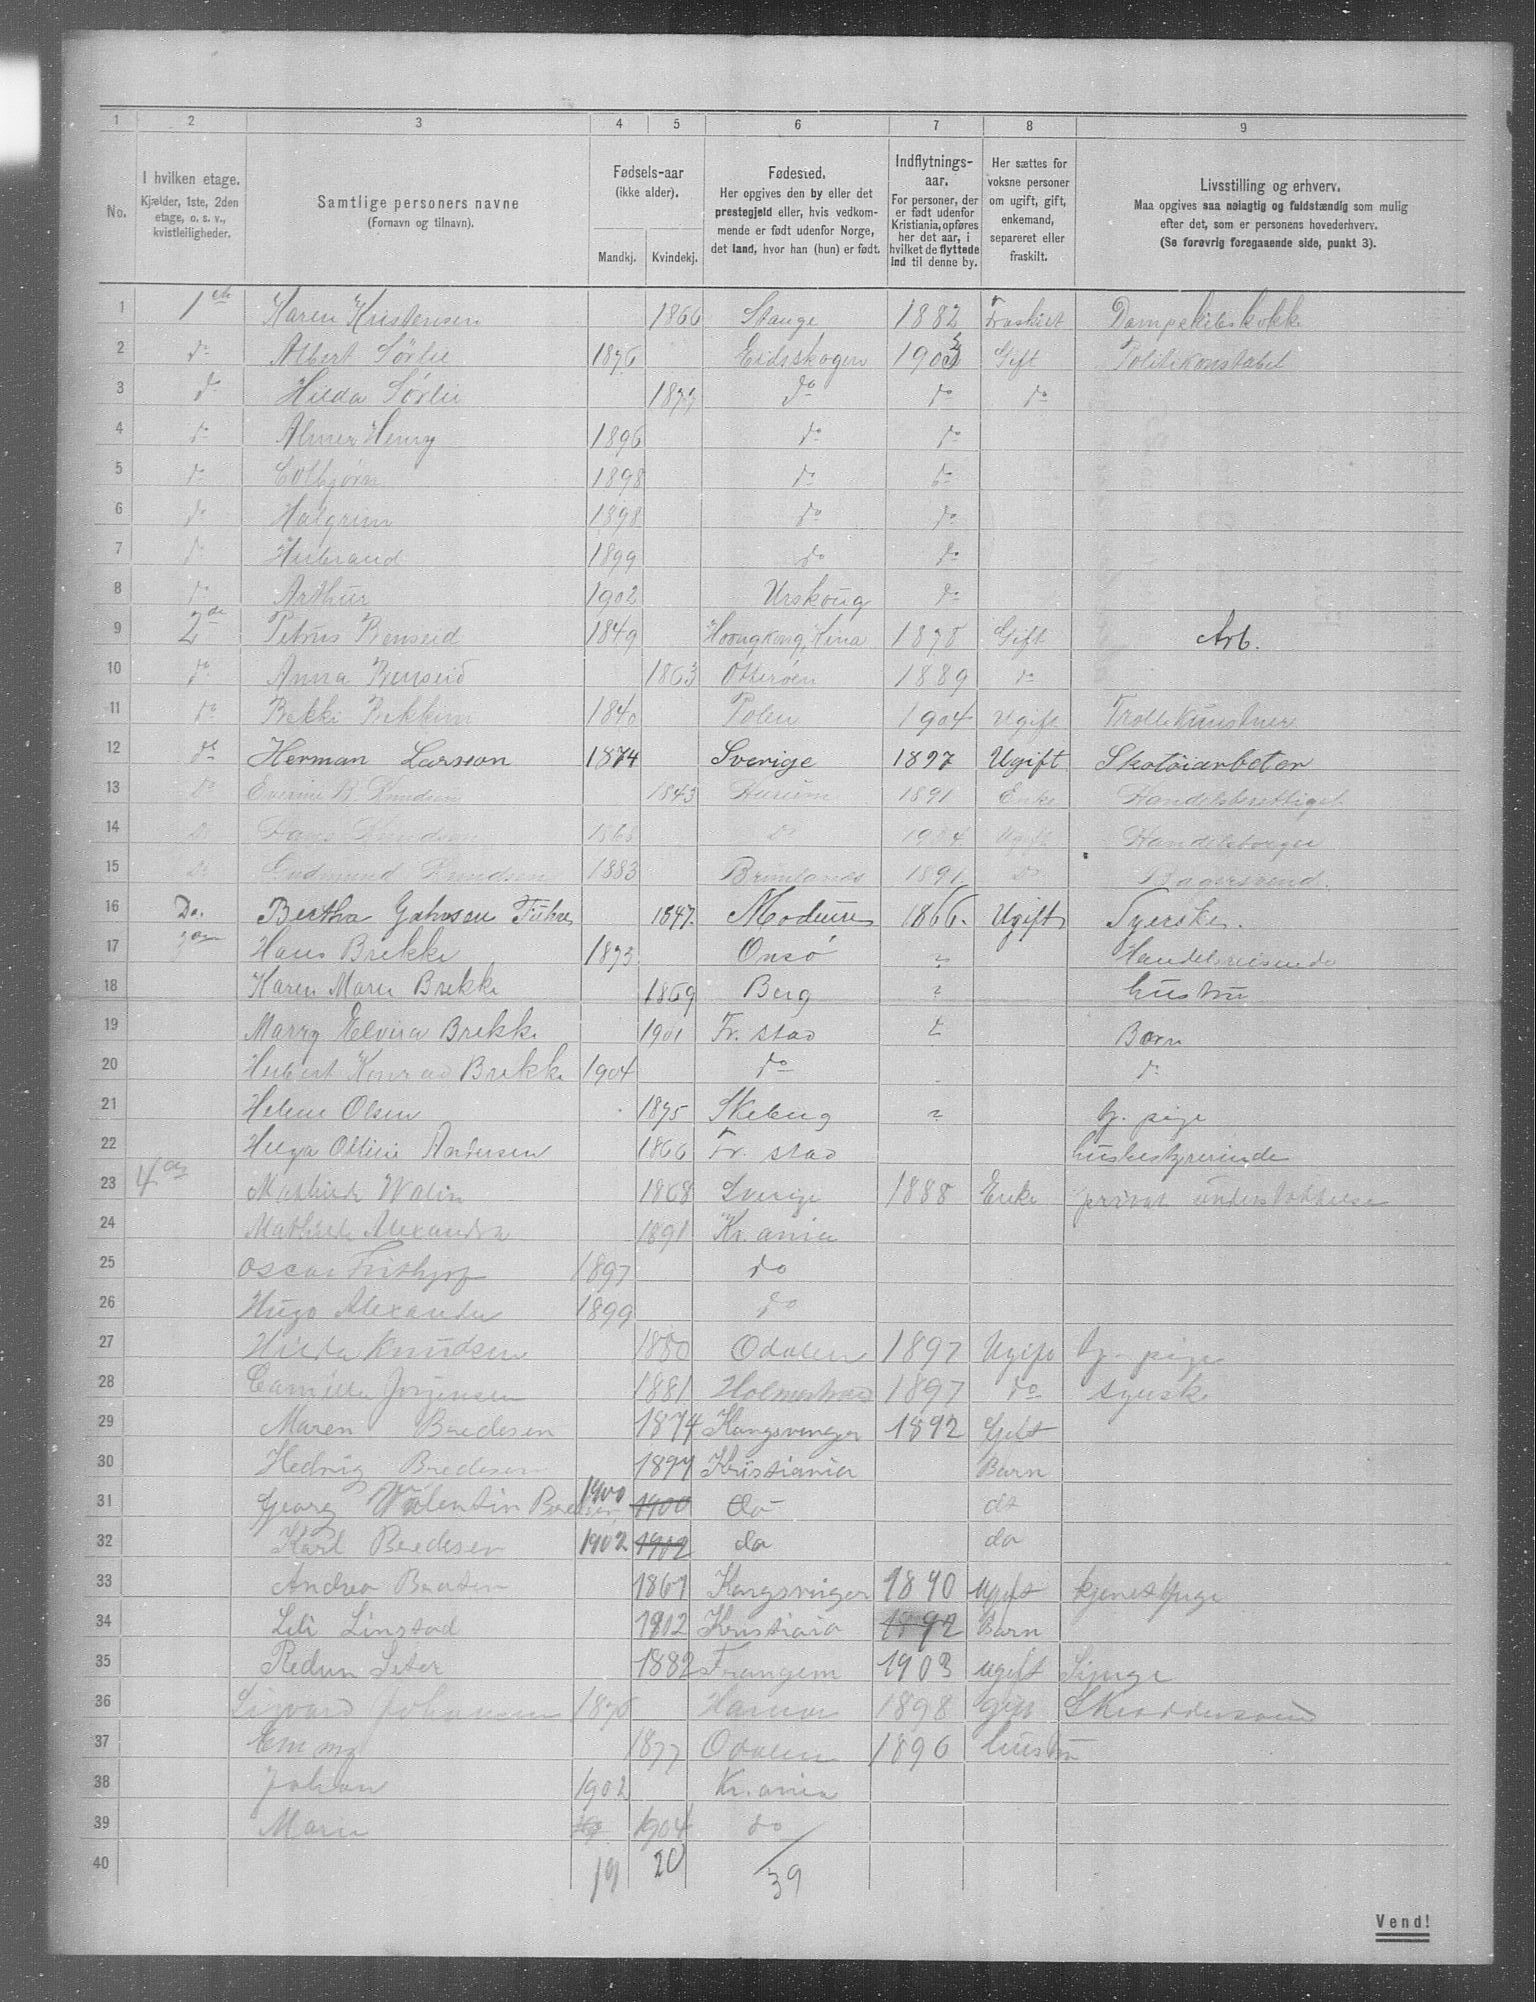 1 2 3 4 5 6 7 8 9
No.
I hvilken etage.
Kjælder, 1ste, 2den
etage, o. s. v.,
kvistleiligheder.
Samtlige personers navne
(Fornavn og tilnavn).
Fødsels-aar
(ikke alder).
Mandkj. Kvindekj.
Fødested.
Her opgives den by eller det
prestegjeld eller, hvis vedkom-
mende er født udenfor Norge,
det land, hvor han (hun) er født.
Indflytnings-
aar.
For personer, der
er født udenfor
Kristiania, opføres
her det aar, i
hvilket de flyttede
ind til denne by.
Her sættes for
voksne personer
om ugift, gift,
enkemand,
separeret eller
fraskilt.
Livsstilling og erhverv.
Maa opgives saa nøiagtig og fuldstændig som mulig
efter det, som er personens hovederhverv.
(Se forøvrig foregaaende side, punkt 3).
1 1ste Karen Kristensen 1866 Stange 1882 Fraskilt Dampskibskokke
2 do Albert Sørlie 1876 Eidsskogen 1903 Gift Politikonstabel
3 do Hilda Sørlie 1877 do do do
4 do Almer Henry 1896 do do
5 do Colbjørn 1898 do do
6 do Halgrim 1898 do do
7 do Herbrand 1899 do do
8 do Arthur 1902 Urskoug do
9 2de Petrus Benseid 1849 Hoongkong, Kina 1878 Gift Arb.
10 do Anna Benseid 1863 Otterøen 1889 do
11 do Bekki Bekkim 1840 Polen 1904 Ugift Trollkunstner
12 do Herman Larsson 1874 Sverige 1897 Ugift Skotøiarbeter
13 Do Knudsen 1843 1891 Enke Handelsberettiget
14 Do Hans Knudsen Do Ugift Handelsborger
15 Do Gudmund Knudsen 1883 Brunlanes 1891 Do Bagersvend
16 Do. Bertha 1847. Modum 1866. Ugift Syerske.
17 Hans Brekke 1873 Onsø ? Handelsreisende
18 Karen Marie Brekke 1869 Berg ? hustru
19 Marry Elvira Brekke 1901 Fr. stad Barn
20 Herbert Konrad Brekke 1904 do do
21 Helene Olsen 1875 Skeberg ? tj. pige
22 Helga Ottilie Andersen 1866 Fr. stad husbestyrerinde
23 4de Mathilde Walin 1868 Sverige 1888 Enke privat understøttelse
24 Mathilde Alexandra 1891 Kr.ania
25 Oscar Frithjof 1897 do
26 Hugo Alexander 1899 do
27 Hilda Knudsen 1880 Odalen 1897 Ugift tj. pige
28 Camilla Jørgensen 1881 Holmestrand 1897 do syerske
29 Maren Bredesen 1874 Kongsvinger 1892 Gift
30 Hedvig Bredesen 1897 Kristiania Barn
31 Georg Valentin Bredesen 1900 1900 do do
32 Karl Bredesen 1902 1902 do do
33 Andrea Braaten 1867 Kongsvinger 1890 ugift tjenestpige
34 Lili Linstad 1902 Kristiania 1892 Barn
35 Seter 1882 1903 ugift
36 Sigvard Johansen 1876 Hamar 1898 Gift Skræddersvend
37 Emmy 1877 Odalen 1896 hustru
38 Johan 1902 Kr.ania
39 Marie 1904 do
40 19 20 39
Vend!